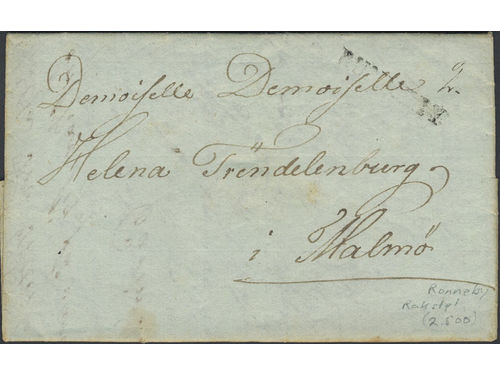 Demoiselle Demoiselle
Helena Trendelenburg
i Malmö
Ronneby
Rakstpl
(2.500)